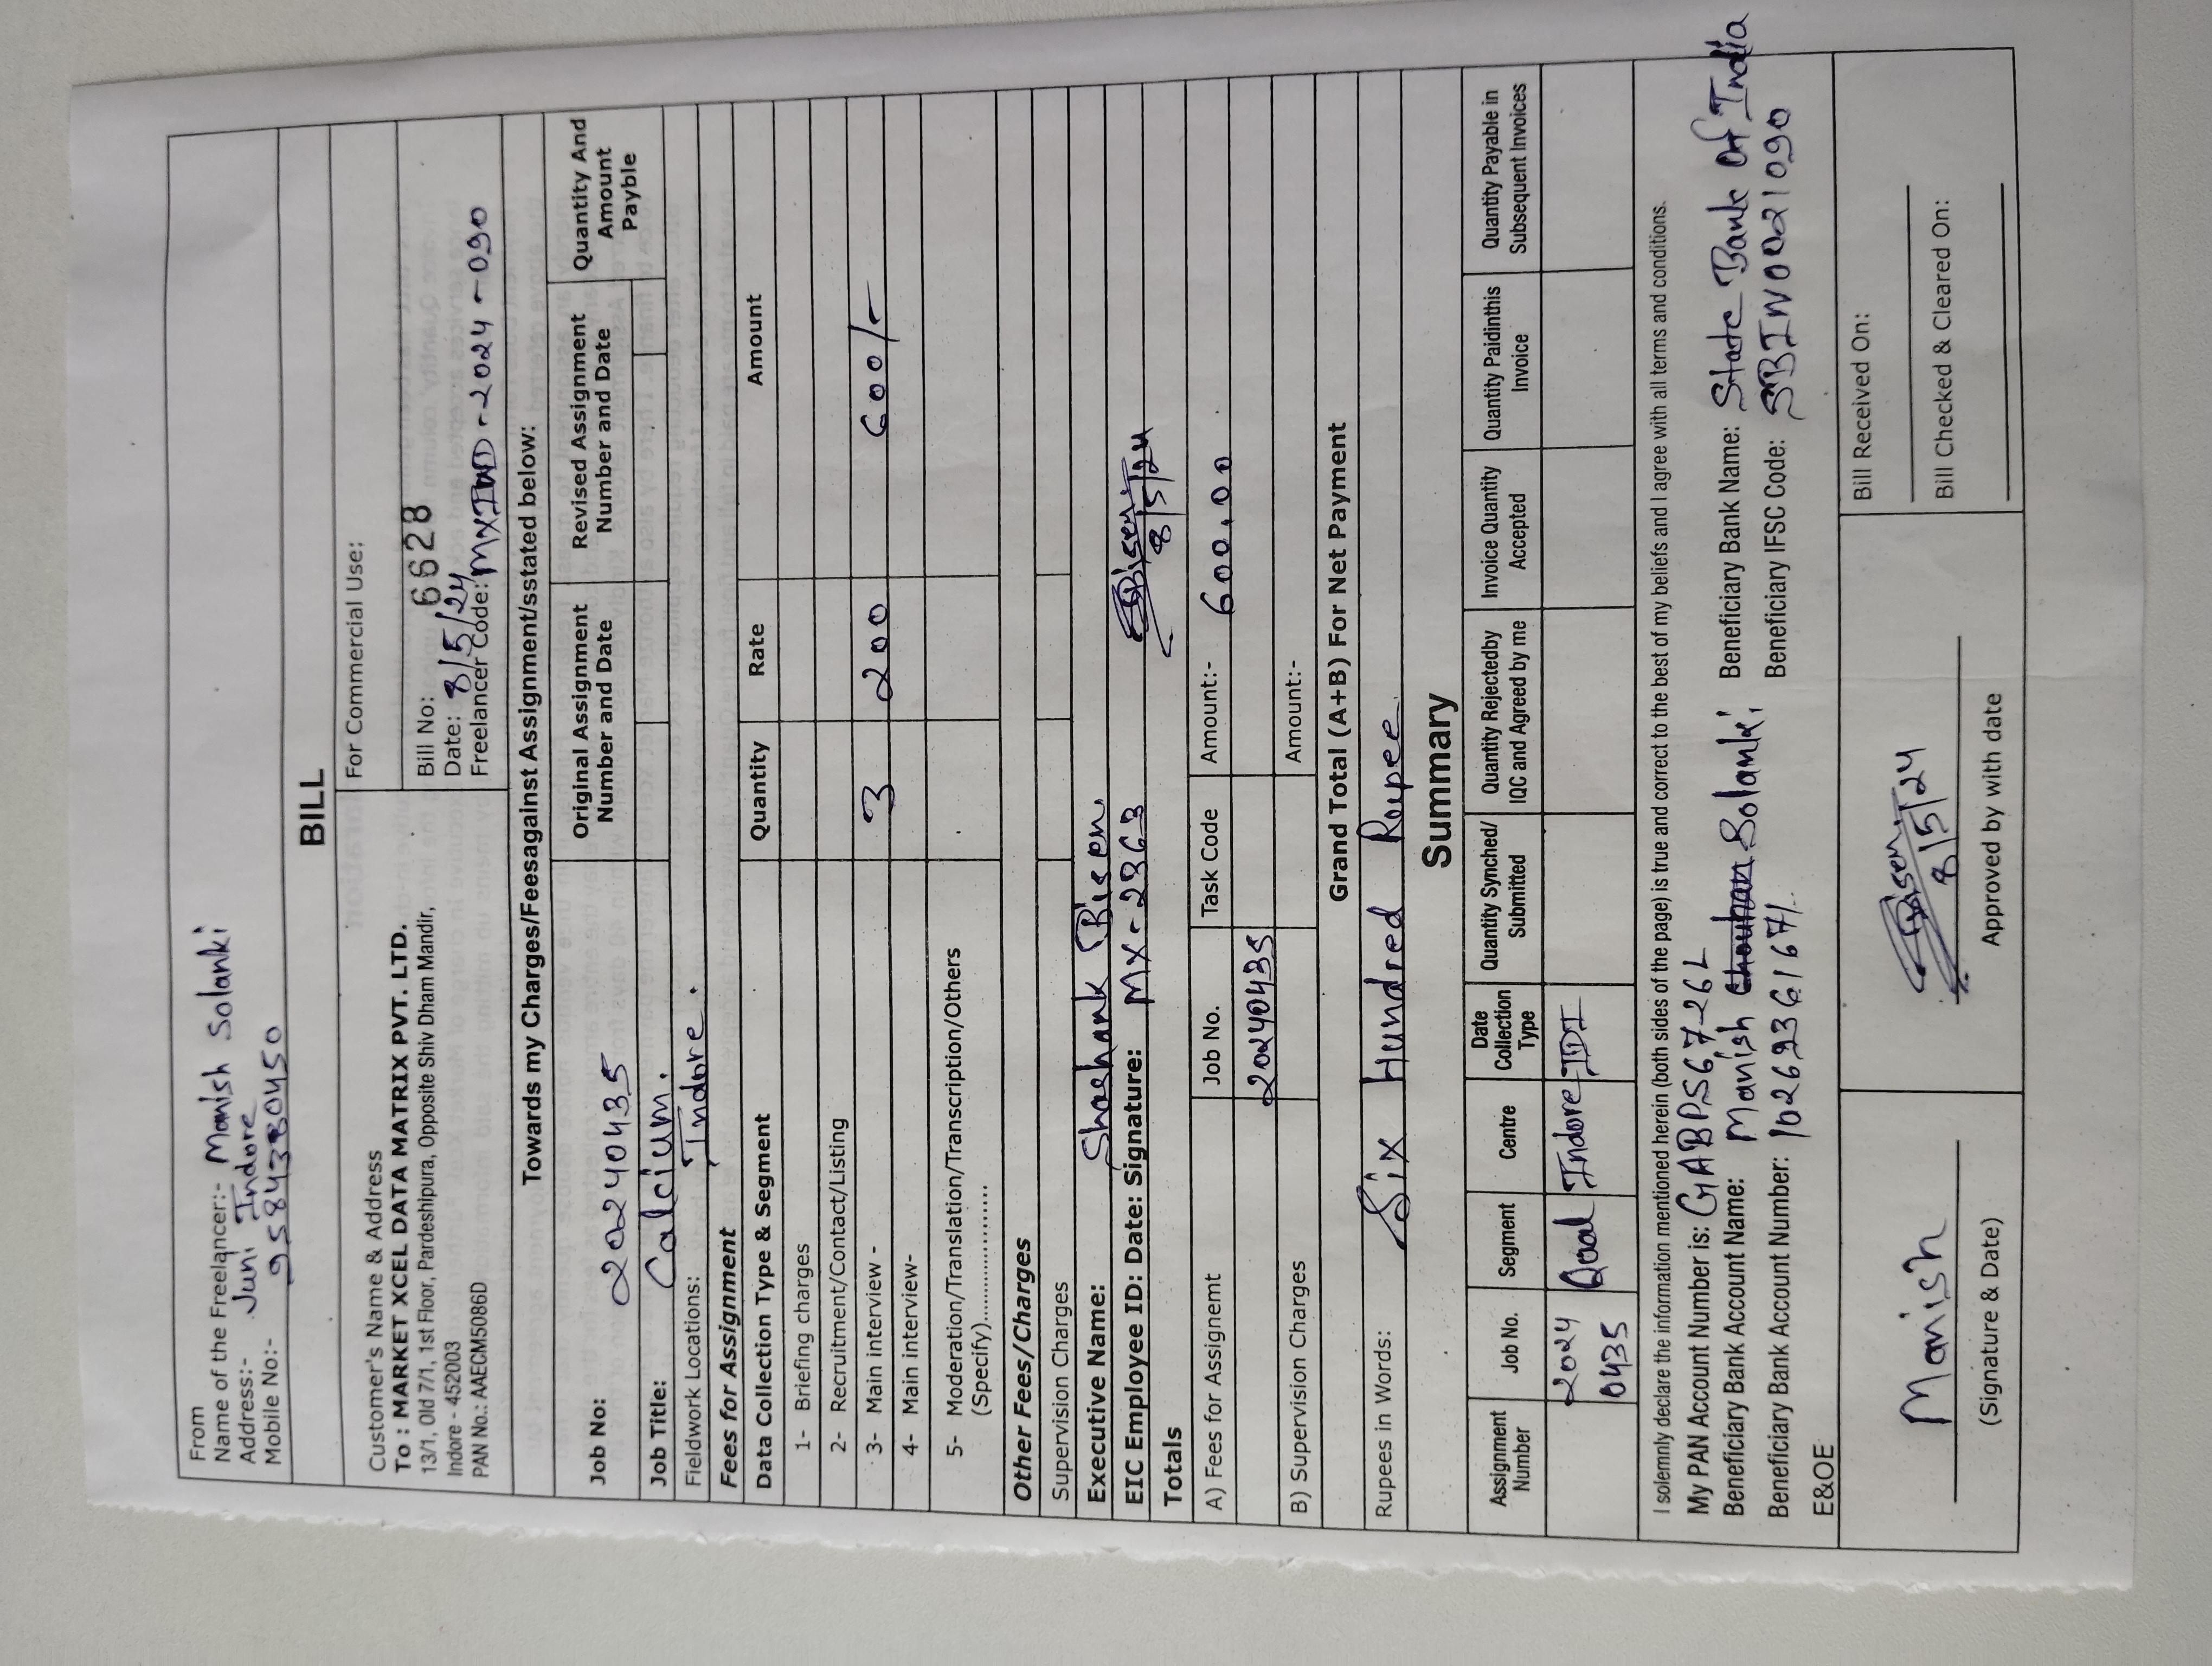 From
Name of the Freelancer:- Manish Solanki
Address:- Juni Indore
Mobile No:- 9584380450
BILL
Customer's Name & Address
To : MARKET XCEL DATA MATRIX PVT. LTD.
13/1, Old 7/1, 1st Floor, Pardeshipura, Opposite Shiv Dham Mandir,
Indore - 452003
PAN No.: AAECM5086D
For Commercial Use:
Bill No: 6628
Date: 8/5/24
Freelancer Code: MXIND-2024-090
Towards my Charges/Feesagainst Assignment/sstated below:
Job No: 20240435
Original Assignment Number and Date
Revised Assignment Number and Date
Quantity And Amount Payble
Job Title: Calcium.
Fieldwork Locations: Indore.
Fees for Assignment
Data Collection Type & Segment Quantity Rate Amount
1- Briefing charges
2- Recruitment/Contact/Listing
3- Main interview - 3 200 600/-
4- Main interview-
5- Moderation/Translation/Transcription/Others
(Specify)....................
Other Fees/Charges
Supervision Charges
Executive Name: Shashank Bisen
EIC Employee ID: Date: Signature: MX-2363 Bisen 8/5/24
Totals
A) Fees for Assignemt Job No. Task Code Amount:- 600.00
20240435
B) Supervision Charges Amount:-
Grand Total (A+B) For Net Payment
Rupees in Words: Six Hundred Rupee
Summary
Assignment Number Job No. Segment Centre Date Collection Type Quantity Synched/ Submitted Quantity Rejectedby IQC and Agreed by me Invoice Quantity Accepted Quantity Paidinthis Invoice Quantity Payable in Subsequent Invoices
2024 0435 Qual Indore IDI
I solemnly declare the information mentioned herein (both sides of the page) is true and correct to the best of my beliefs and I agree with all terms and conditions.
My PAN Account Number is: GABPS6726L
Beneficiary Bank Account Name: Manish Chouhan Solanki Beneficiary Bank Name: State Bank of India
Beneficiary Bank Account Number: Beneficiary IFSC Code: SBIN0021090
E&OE
Manish
(Signature & Date)
Bisen
8/5/24
Approved by with date
Bill Received On:
Bill Checked & Cleared On: